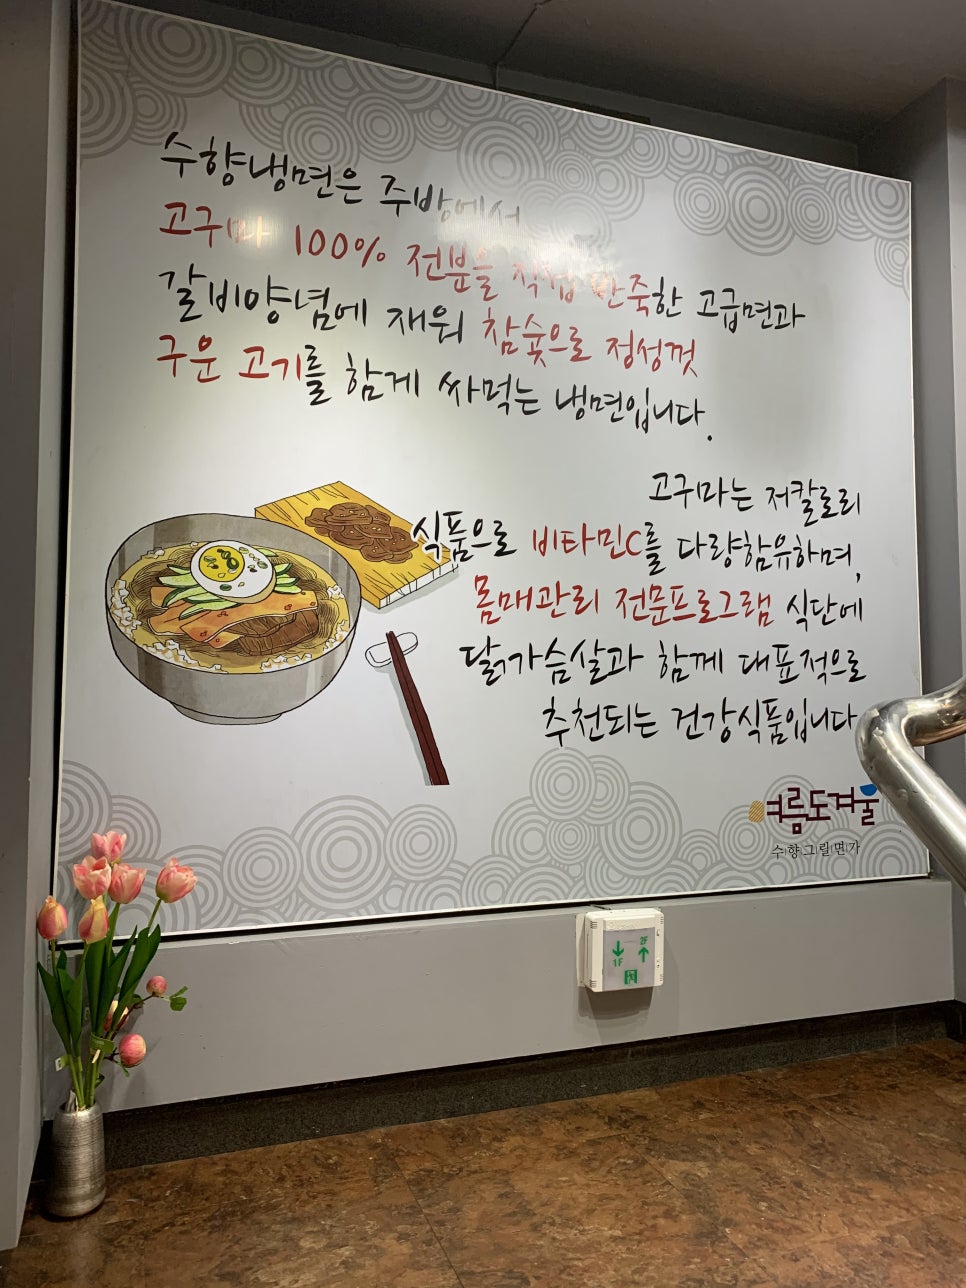 수향냉면은 주방에서
고구마 100% 전분을 직접 반죽한 고급면과
갈비양념에 재워 참숯으로 정성껏
구운 고기를 함께 싸먹는 냉면입니다.
고구마는 저칼로리
식품으로 비타민C를 다량함유하며,
몸매관리 전문프로그램 식단에
닭가슴살과 함께 대표적으로
추천되는 건강식품입니다.
여름도겨울
수|향|그|릴|면|가
2F
1F